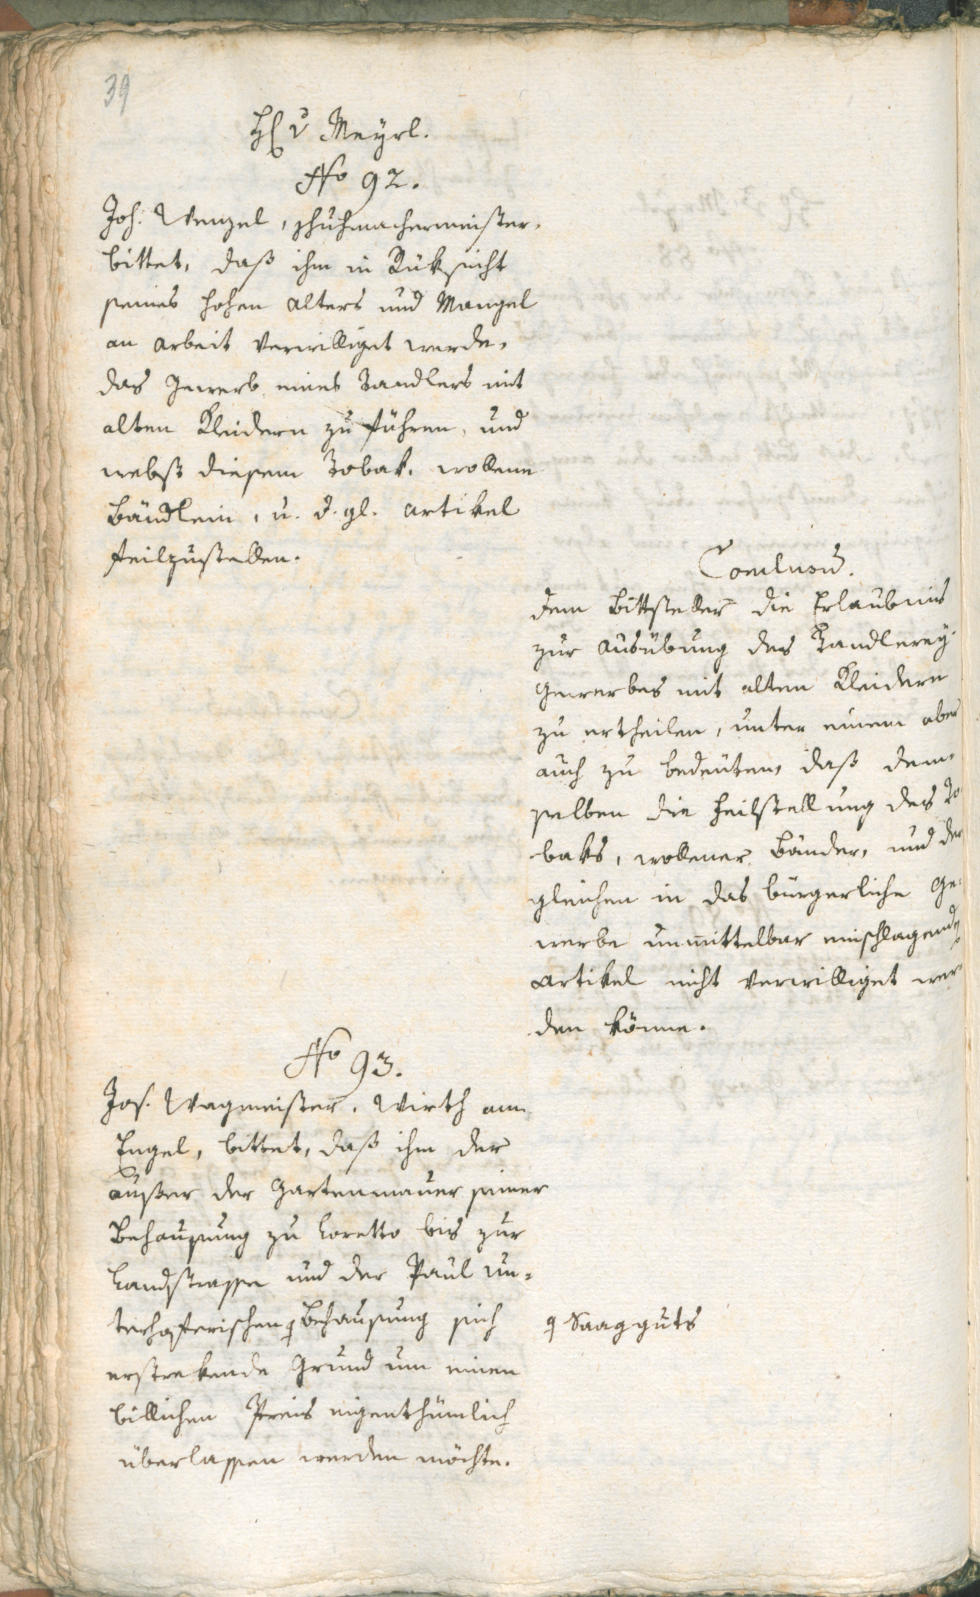 39
H. v Meyrl.
No 92.
Joh. Wenzel, Schuhmachermeister,
bittet, daß ihm in Rüksicht
seines hohen Alters und Mangel
an Arbeit verwilliget werde,
das Gewerb eines Tandlers mit
alten Kleidern zu führen, und
nebst diesem Tobak, wollene
Bändlein, u. d. gl. Artikel
feilzustellen.
Conclusū.
Dem Bittsteller die Erlaubnis
zur Ausübung des Tandlerey-
Gewerbes mit alten Kleidern
zu ertheilen, unter einem aber
auch zu bedeuten, daß dem-
selben die Feilstellung des To
baks, wollener Bänder, und der
gleichen in das bürgerliche Ge-
werbe unmittelbar einschlagende
Artikel nicht verwilliget wer
den könne.
No 93.
Jos. Wagmeister, Wirth am
Engel, bittet, daß ihm der
außer der Gartenmauer seiner
Behausung zu Loretto bis zur
Landstrasse und der Paul Un-
terhoferischen Behausung sich
Saagguts
erstrekende Grund um einen
billichen Preis eigenthümlich
überlassen werden möchte.